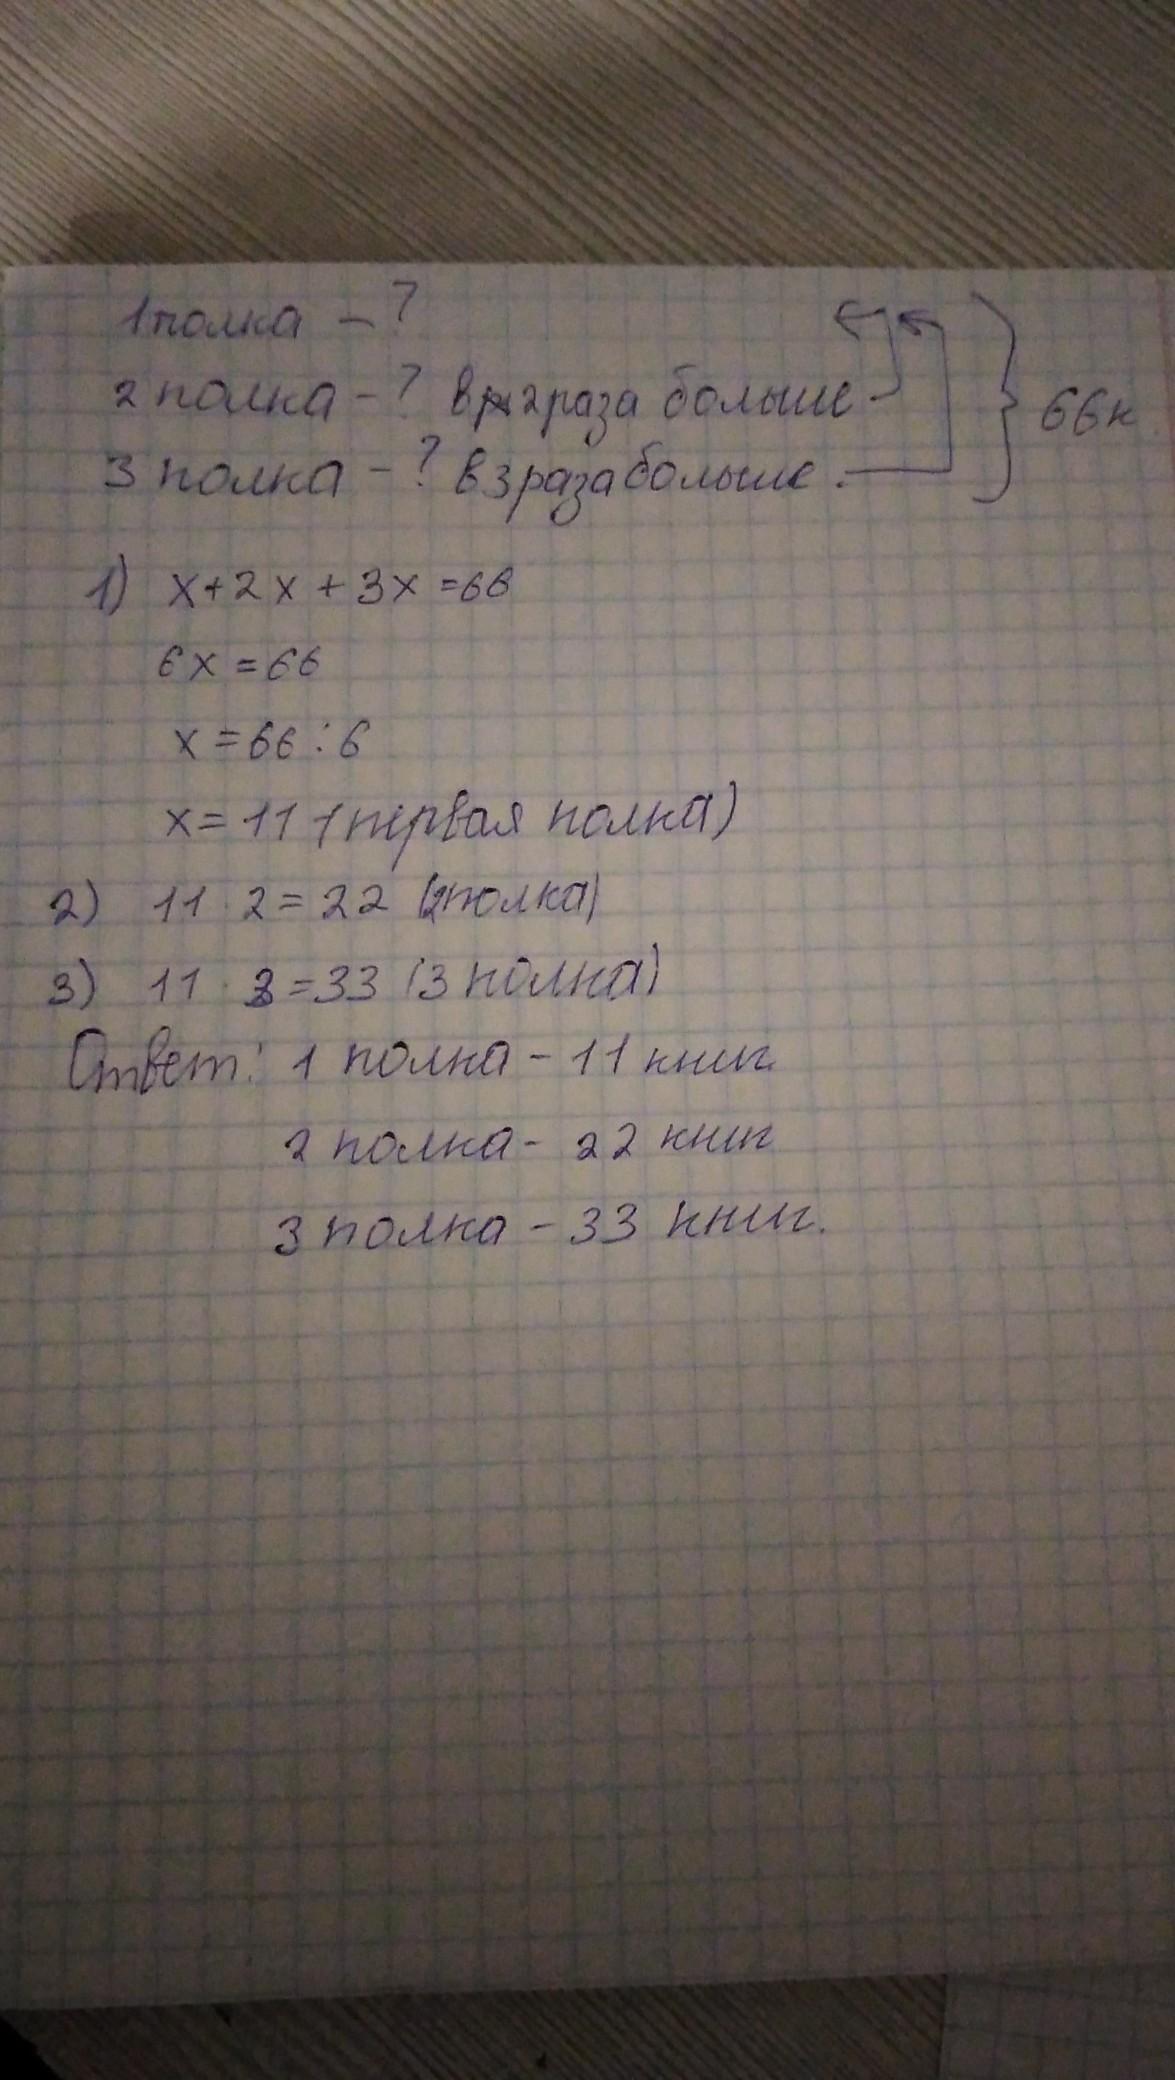 1 полка – ?
2 полка – ? в 2 раза больше
3 полка – ? в 3 раза больше.
66к
1) x + 2x + 3x = 66
6x = 66
x = 66 : 6
x = 11 (первая полка)
2) 11 · 2 = 22 (2 полка)
3) 11 · 3 = 33 (3 полка)
Ответ: 1 полка – 11 книг.
2 полка – 22 книг
3 полка – 33 книг.